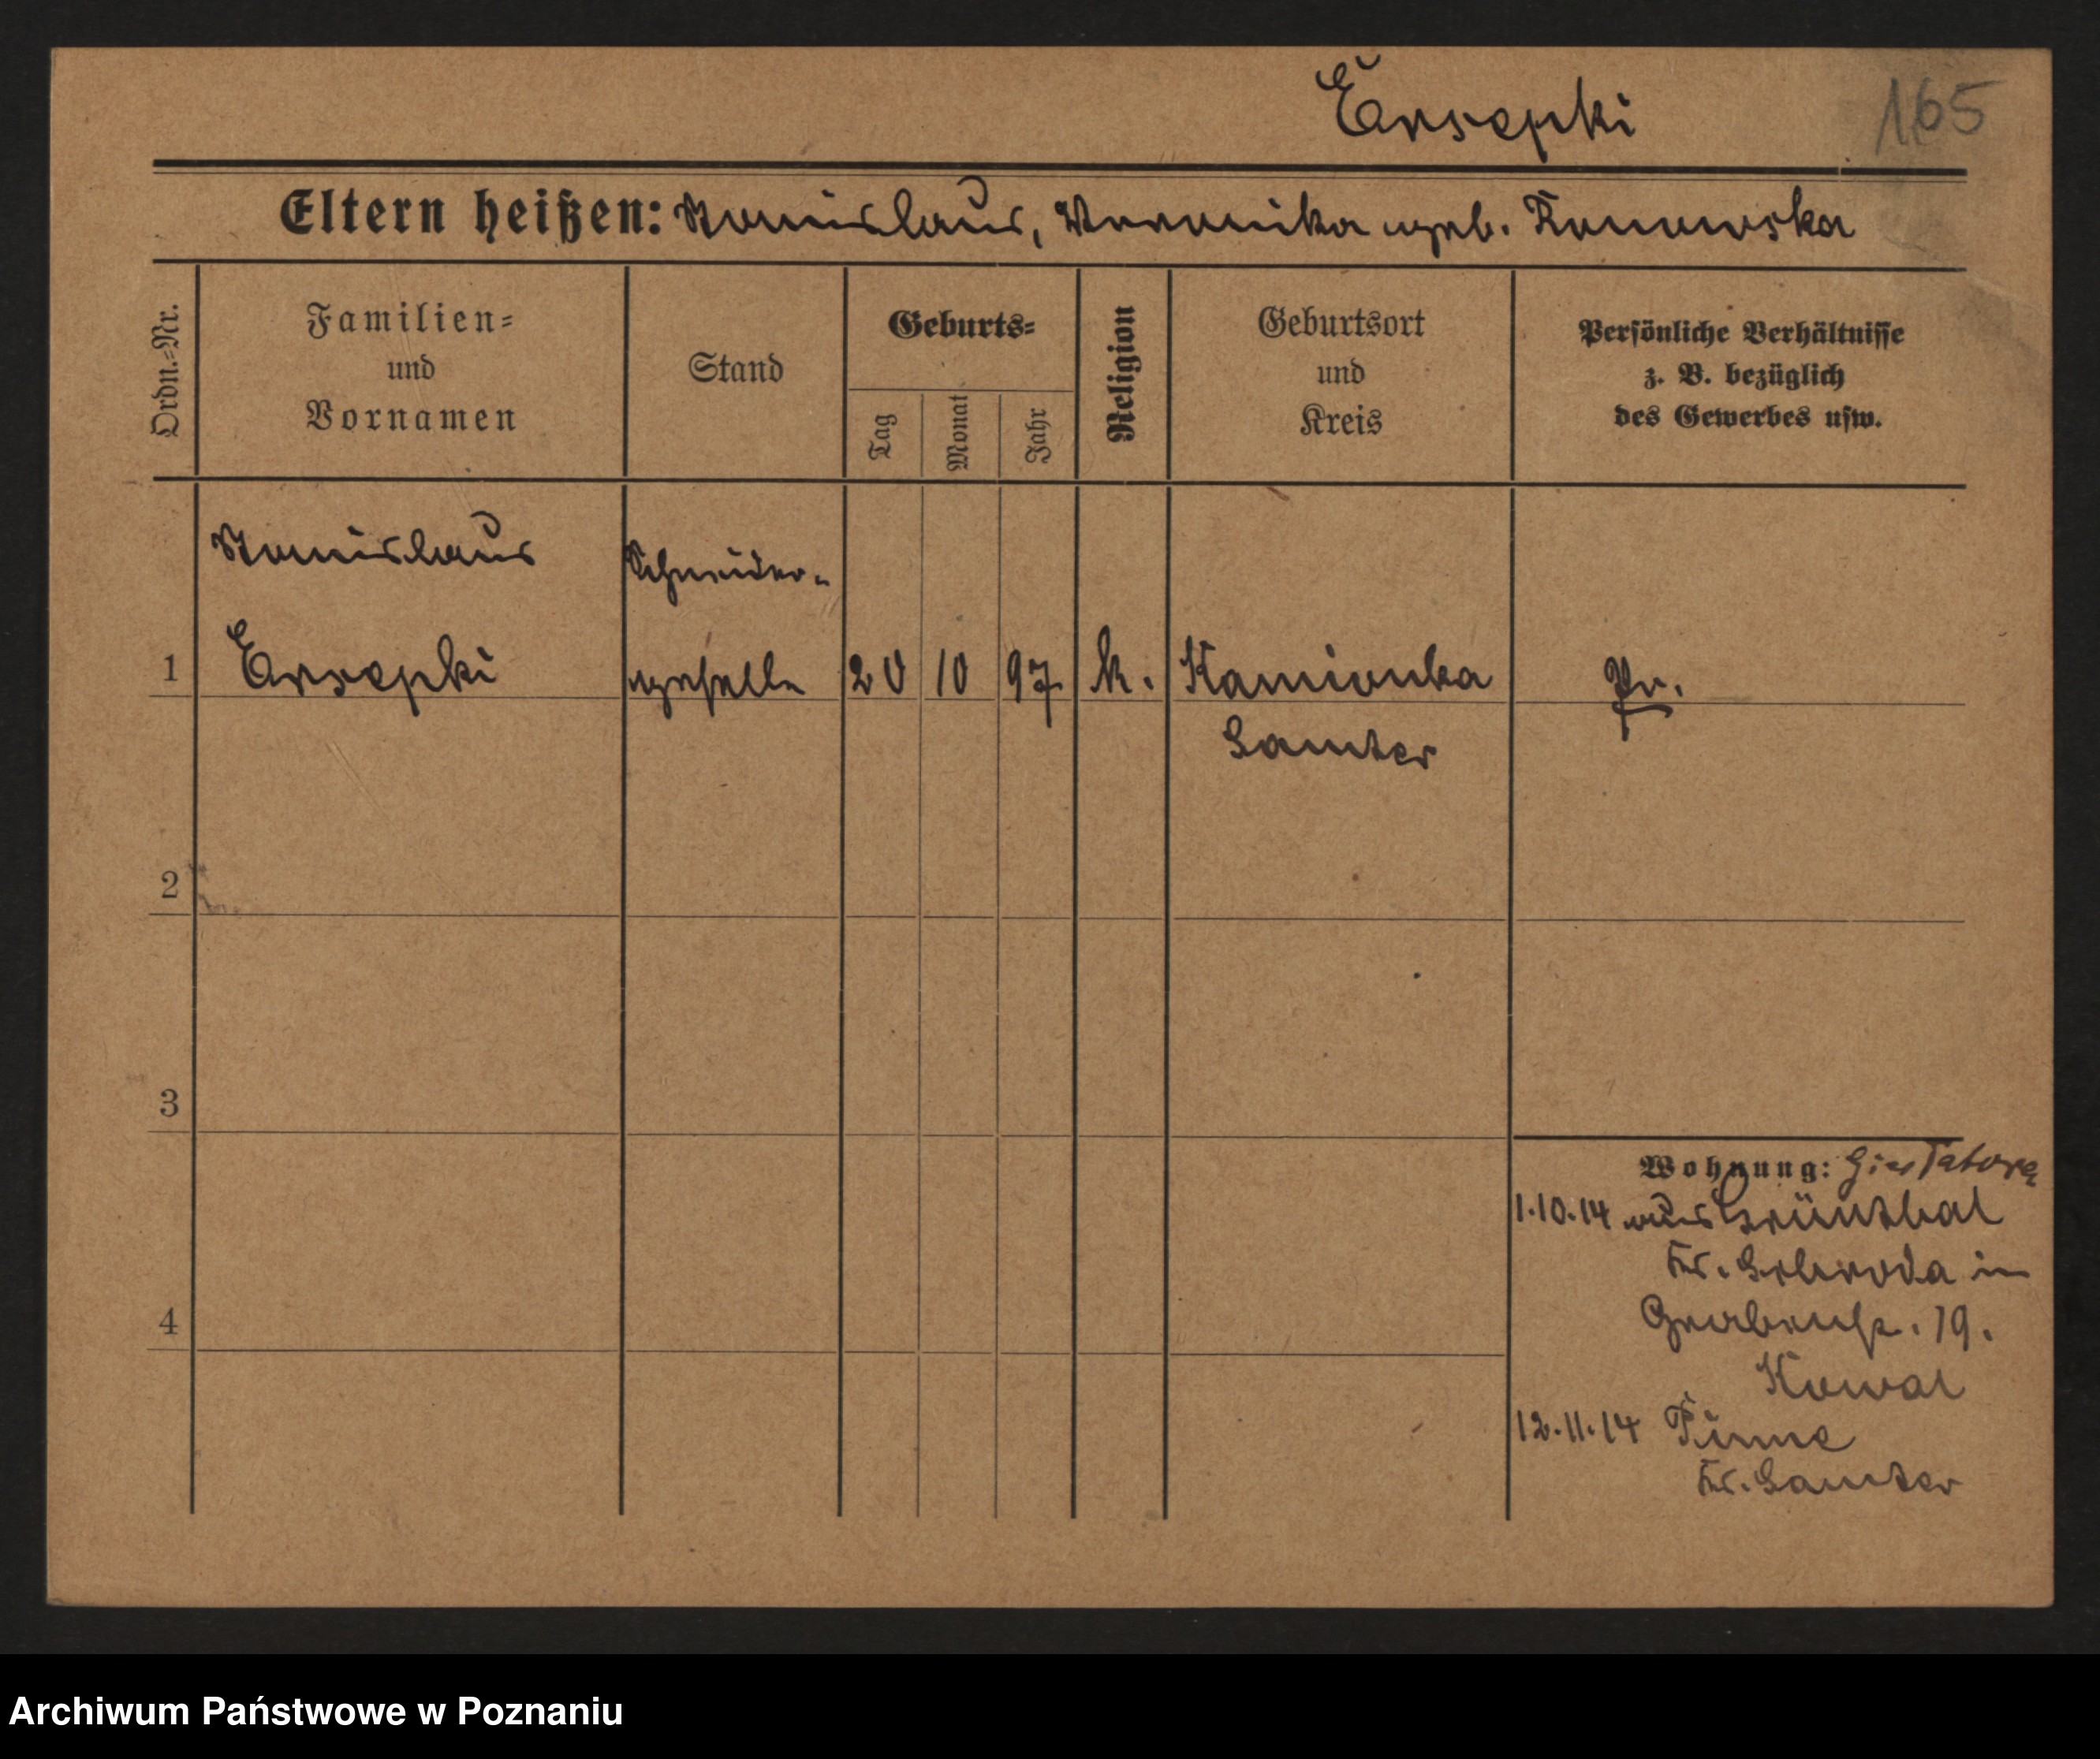 165
Eltern heißen: Stanislaus, Veronika geb.
Ordn.=Nr.
Familien=
und
Vornamen
Stand
Geburts=
Tag
Monat
Jahr
Religion
Geburtsort
und
Kreis
Persönliche Verhältnisse
z. B. bezüglich
des Gewerbes usw.
Stanislaus
Schneider-
1 geselle 20 10 97 k. Kamionka Pr.
Samter
2
3
4
Wohnung:
1.10.14 aus Grünthal
Kr. Schroda in
Grabenstr. 19.
Kowal
12.11.14 Pinne
Kr. Samter
Archiwum Państwowe w Poznaniu